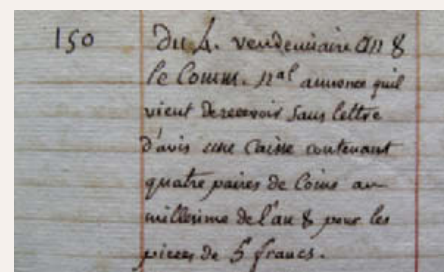 150 du 4. vendemiaire an 8
le Comm. nal annonce quil
vient de recevoir sans lettre
d'avis une Caisse contenant
quatre paires de Coins au
millesime de l'an 8 pour les
pieces de 5 francs.